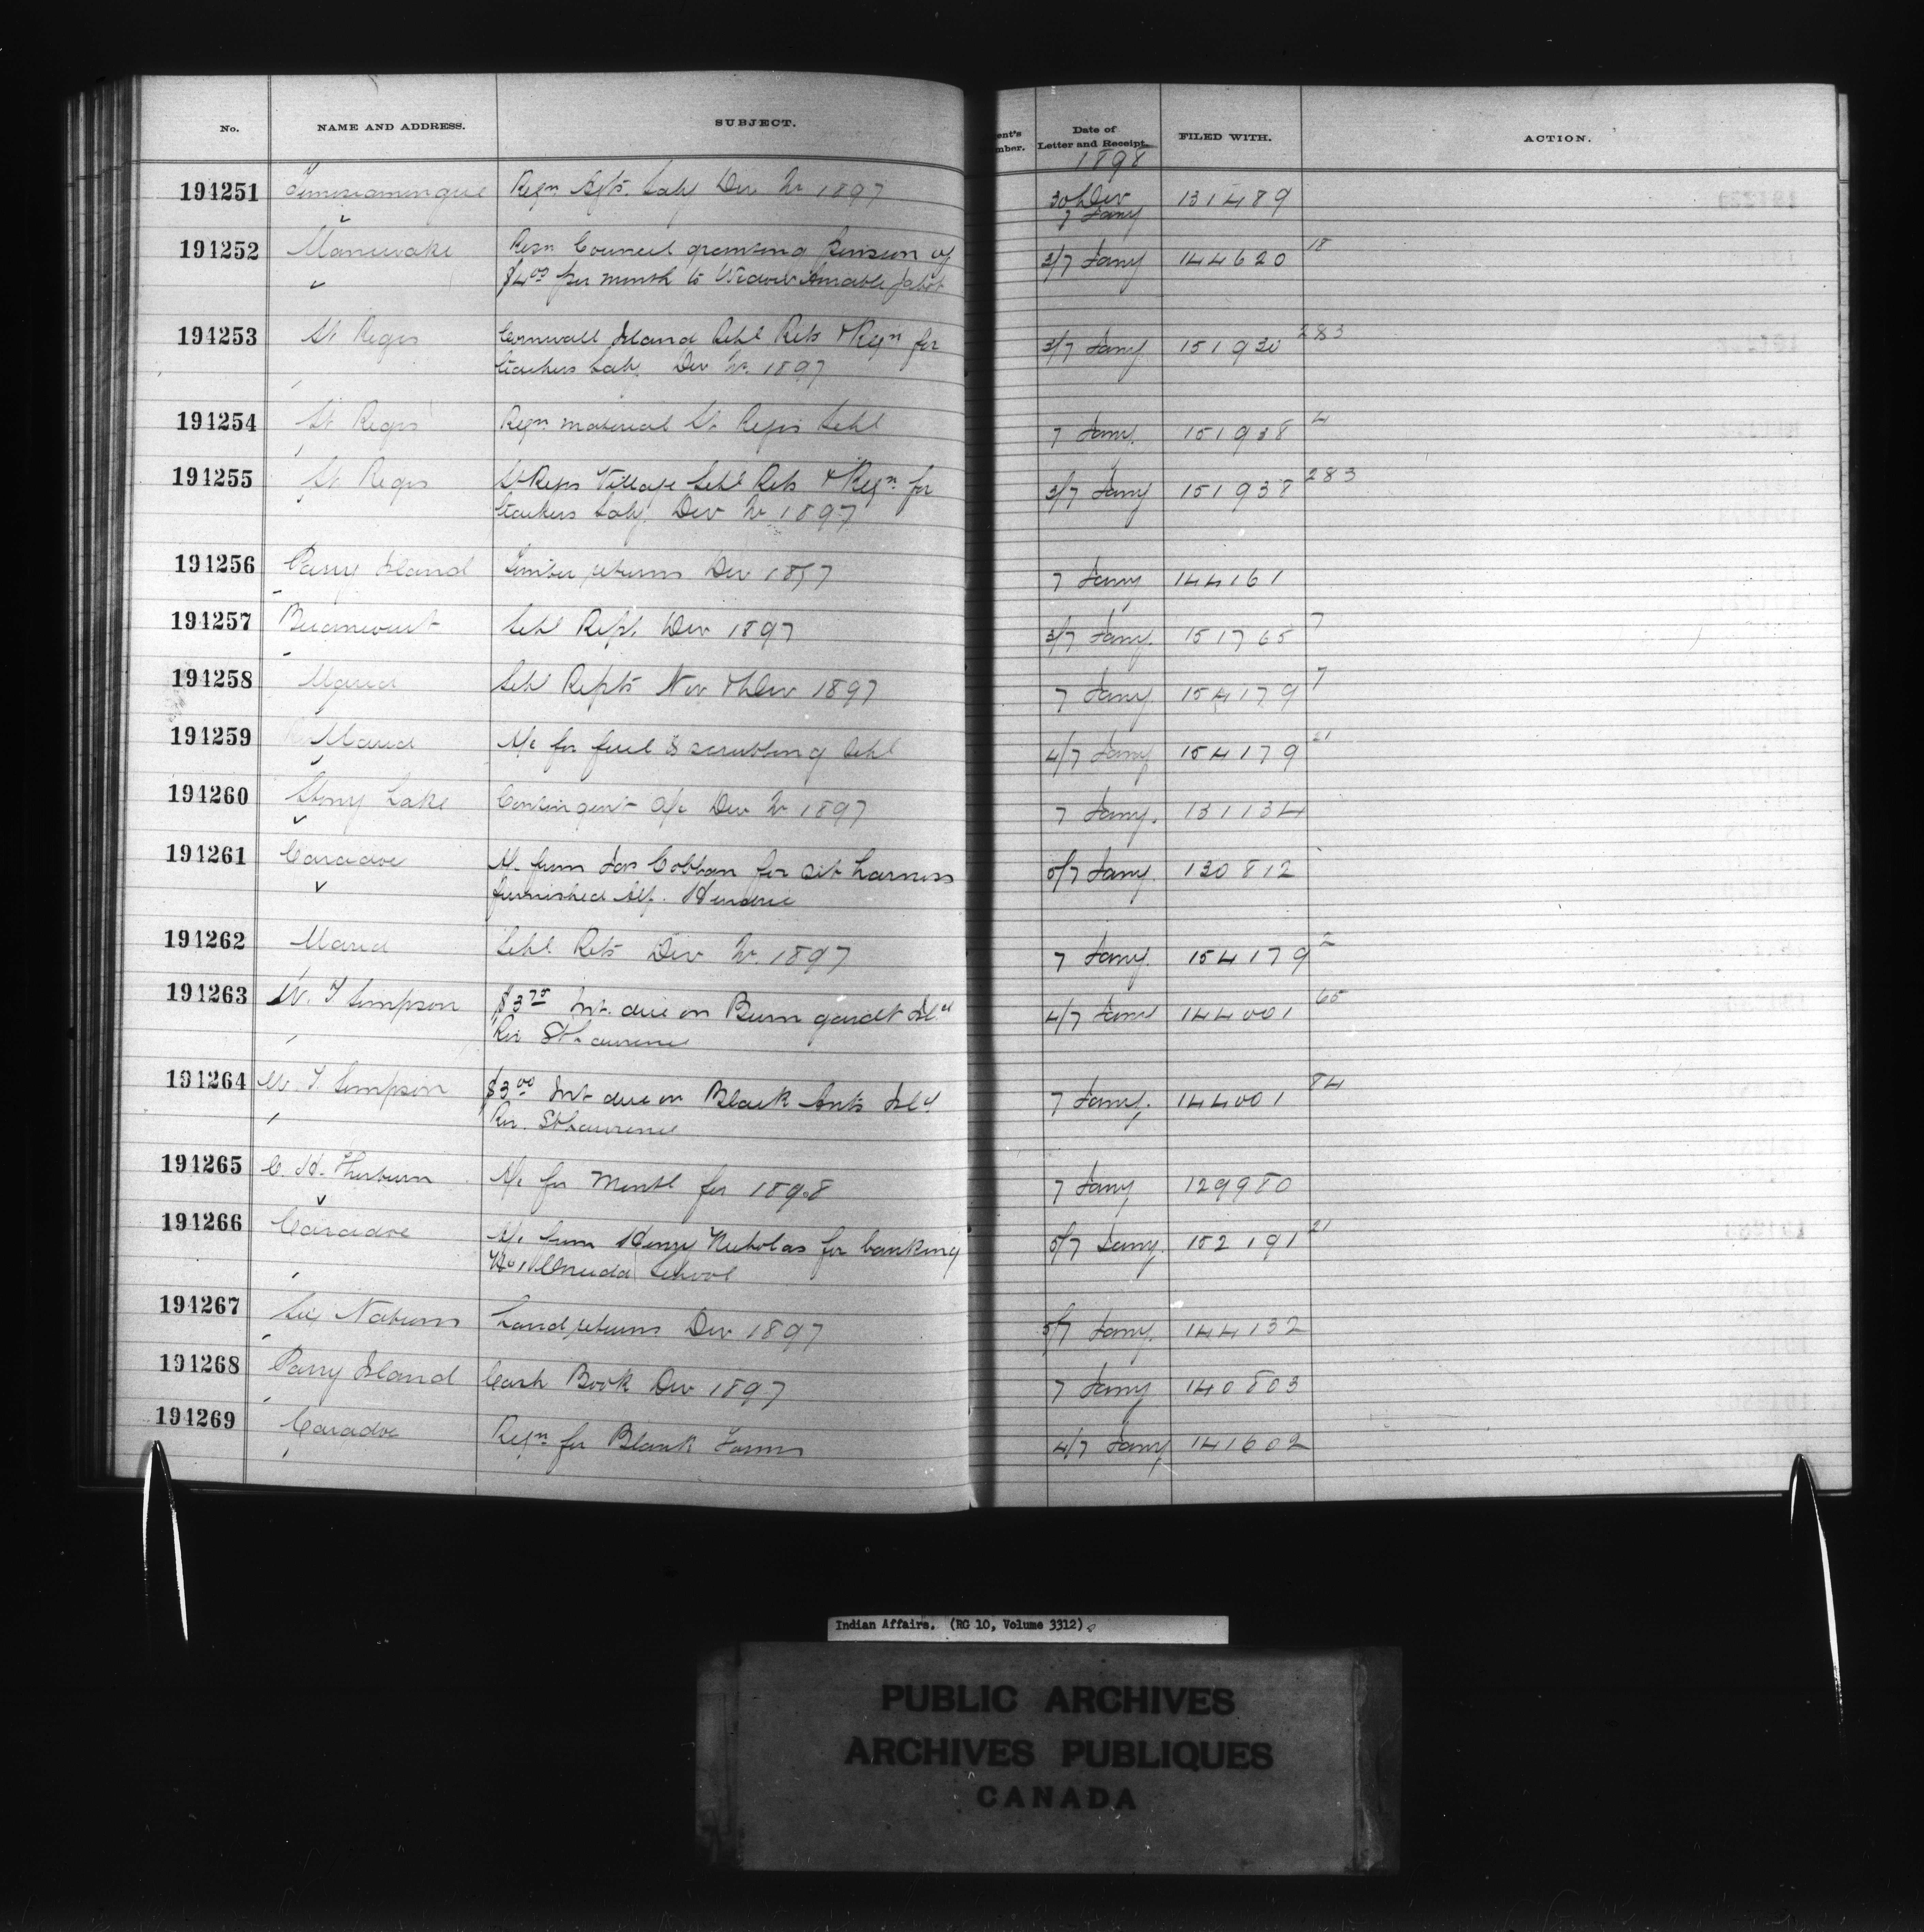 No. NAME AND ADDRESS. SUBJECT. Date of Letter and Receipt. FILED WITH. ACTION.
1898
194251 Temiscamingue Reqn Agts Saly Dec Qr 1897 30 Dec 7 Jany 131489
194252 Maniwaki Resn Council granting pension of 3/7 Jany 144620 18
" $4.00 per month to Widow Amable
194253 St Regis Cornwall Island Schl Rets & Reqn for 3/7 Jany 151930 283
teachers Saly. Dec Qr. 1897
194254 St Regis Reqn material St Regis Schl 7 Jany. 151938 4
194255 St Regis St Regis Village Schl Rets & Reqn for 3/7 Jany 151938 283
teachers Saly. Dec Qr 1897
194256 Parry Island Timber returns Dec 1897 7 Jany 144161
194257 Becancourt Schl Rept. Dec 1897 3/7 Jany. 151765 7
194258 Maria Schl Repts Nov & Dec 1897 7 Jany 154179 7
194259 Maria A/c for fuel & scrubbing Schl 4/7 Jany 154179 21
194260 Stony Lake Contingent A/c Dec Qr 1897 7 Jany. 131134
194261 Caradoc A/c from Jas Cobban for set harness 5/7 Jany. 130812
furnished
194262 Maria Schl Rets Dec Qr. 1897 7 Jany. 154179 2
194263 W. T Simpson $3.75 Int. due on Isld 4/7 Jany 144001 65
Riv St Lawrence
194264 W. T. Simpson $3.00 Int due on Black Ants Isld 7 Jany. 144001 84
Riv. St Lawrence
194265 C. H. Thorburn A/c for for 1898 7 Jany 129980
194266 Caradoc A/c from Henry Nicholas for banking 5/7 Jany. 152191 21
No. 1 Oneida School
194267 Six Nations Land returns Dec 1897 5/7 Jany. 144132
194268 Parry Island Cash Book Dec 1897 7 Jany 140803
194269 Caradoc Reqn for Blank Forms 4/7 Jany 141602
Indian Affairs. (RG 10, Volume 3312)
PUBLIC ARCHIVES
ARCHIVES PUBLIQUES
CANADA